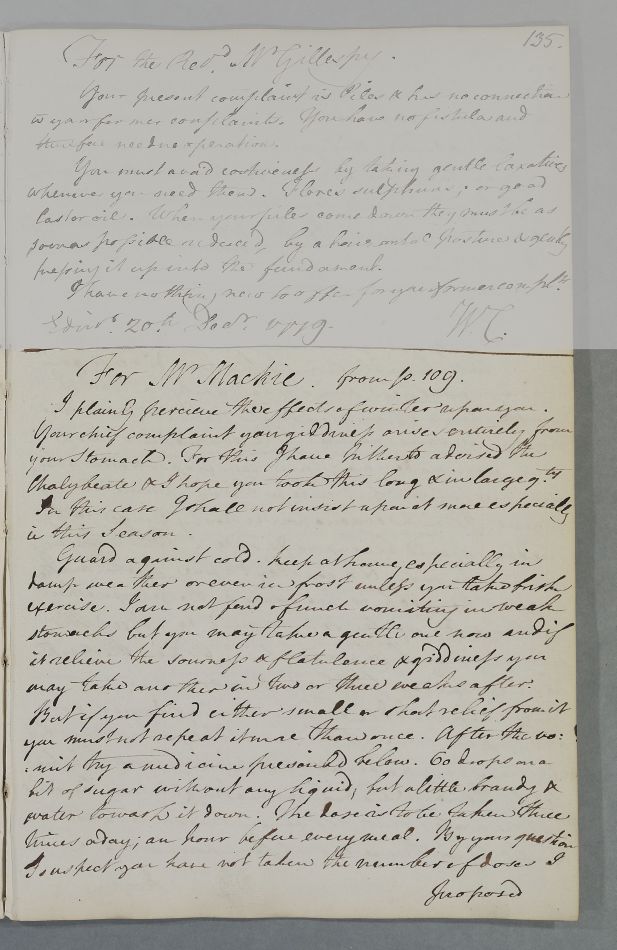 135.
For the Rev.d Mr Gillespy.
Your present complaint is Piles & has no connection
w your former complaints. You have no fistula and
therefore need no operation.
You must avoid costiveness by taking gentle laxatives
whenever you need them. Flores sulphuris, or good
Castor oil. When your piles come down they must be as
soon as possible reduced, by a horizontal posture & gently
pressing it up into the fundament.
I have nothing new to offer for your former compl.ts
Edinr. 20th Decr. 1779. W.C.
For Mr Mackie. from p. 109.
I plainly percieve the effects of winter upon you.
Your chief complaint your giddiness arises entirely from
your stomach. For this I have hitherto advised the
Chalybeate & I hope you took this long & in large q.ts
In this case I shall not insist upon it more especially
in this Season.
Guard against cold. keep at home, especially in
damp weather or even in frost unless you take brisk
exercise. I am not fond of much vomiting in weak
stomachs but you may take a gentle one now and if
it relieve the sourness & flatulence & giddiness you
may take another in two or three weeks after.
But if you find either small or short relief from it
you must not repeat it more than once. After the vo:
:mit try a medicine prescrib'd below. 60 drops on a
bit of sugar without any liquid, but a little brandy &
water to wash it down. The dose is to be taken three
times a day; an hour before every meal. By your question
I suspect you have not taken the number of doses I
proposed